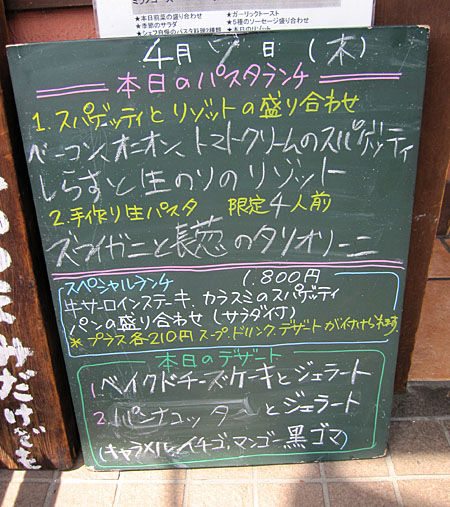 ★本日前菜の盛り合わせ
★季節のサラダ
★シェフ自慢のパスタ料理2種類
★ガーリックトースト
★5種のソーセージ盛り合わせ
★本日のリゾット
4月 日 (木)
本日のパスタランチ
1.スパゲッティとリゾットの盛り合わせ
ベーコン、オニオン、トマトクリームのスパゲッティ
しらすと生のりのリゾット
2.手作り生パスタ 限定4人前
ズワイガニと長葱のタリオリーニ
スペシャルランチ 1.800円
牛サーロインステーキ、カラスミのスパゲッティ
パンの盛り合わせ (サラダ付)
※プラス各210円スープ、ドリンク、デザートが付けられます
本日のデザート
1.ベイクドチーズケーキとジェラート
2.パンナコッタ とジェラート
(キャラメル、イチゴ、マンゴー、黒ゴマ)
みだけでも